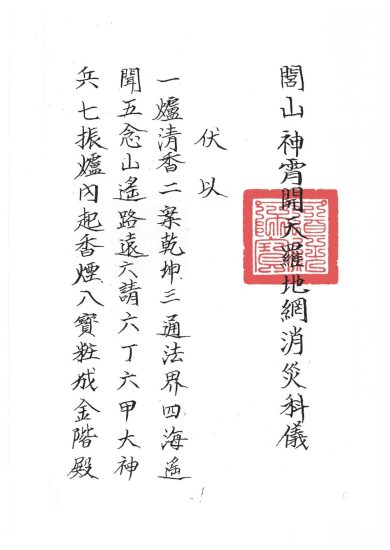 閭山神霄開天羅地網消災科儀
伏以
一爐清香二案乾坤三通法界四海遙
聞五念山遙路遠六請六丁六甲大神
兵七振爐內起香煙八寶粧成金階殿
1